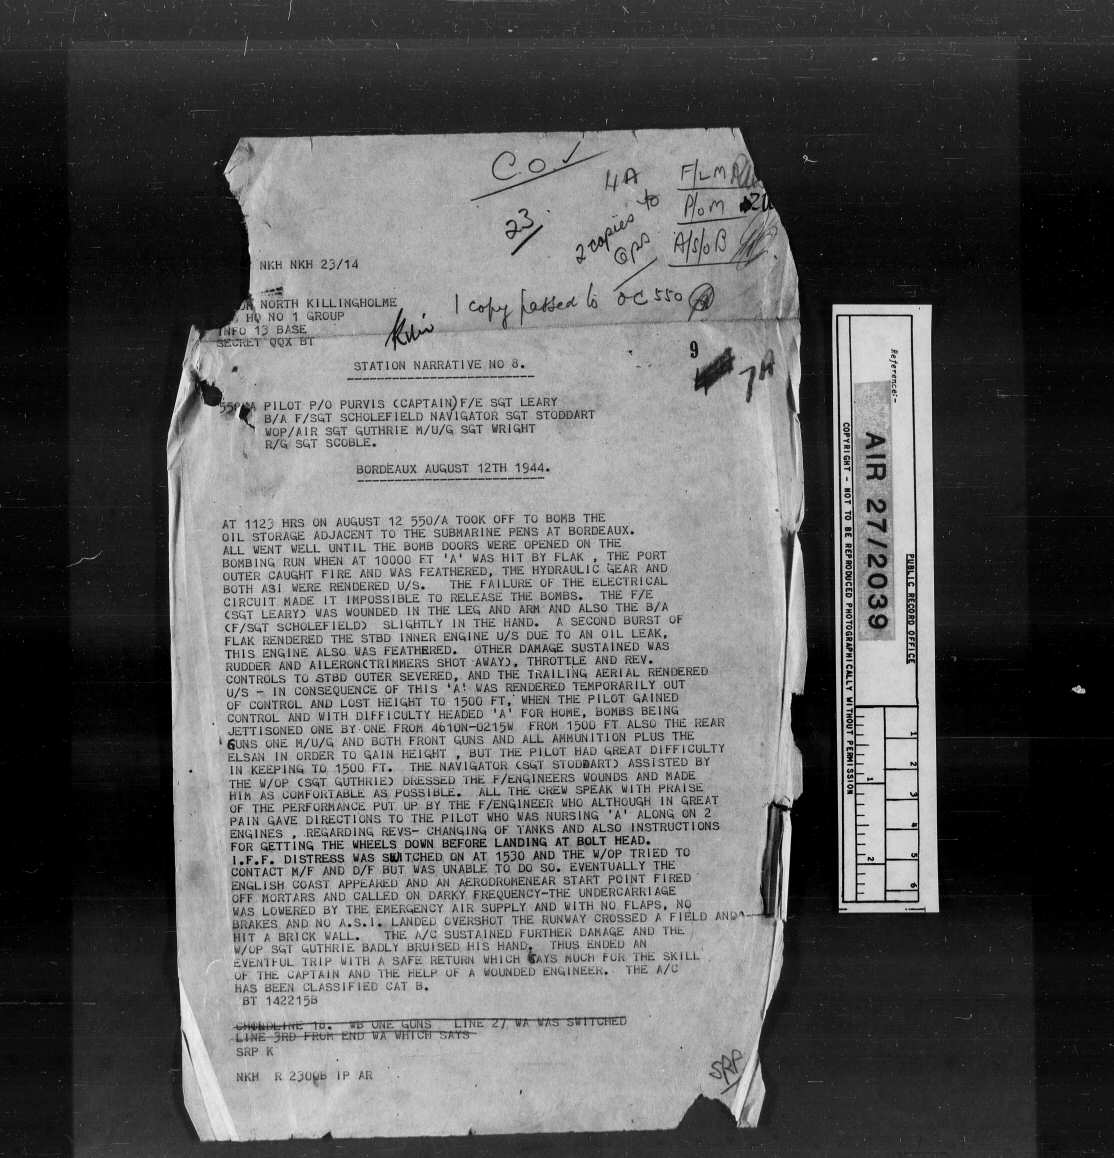 C.O. ✓
4A
F/L M
23.
2 copies to
Ops
P/O M
A/S/O B
NKH NKH 23/14
NORTH KILLINGHOLME
HQ NO 1 GROUP
INFO 13 BASE
SECRET QQX BT
1 copy passed to OC 550
STATION NARRATIVE NO 8.
9
7A
PILOT P/O PURVIS (CAPTAIN)F/E SGT LEARY
B/A F/SGT SCHOLEFIELD NAVIGATOR SGT STODDART
WOP/AIR SGT GUTHRIE M/U/G SGT WRIGHT
R/G SGT SCOBLE.
BORDEAUX AUGUST 12TH 1944.
AT 1123 HRS ON AUGUST 12 550/A TOOK OFF TO BOMB THE
OIL STORAGE ADJACENT TO THE SUBMARINE PENS AT BORDEAUX.
ALL WENT WELL UNTIL THE BOMB DOORS WERE OPENED ON THE
BOMBING RUN WHEN AT 10000 FT 'A' WAS HIT BY FLAK , THE PORT
OUTER CAUGHT FIRE AND WAS FEATHERED, THE HYDRAULIC GEAR AND
BOTH ASI WERE RENDERED U/S. THE FAILURE OF THE ELECTRICAL
CIRCUIT MADE IT IMPOSSIBLE TO RELEASE THE BOMBS. THE F/E
(SGT LEARY) WAS WOUNDED IN THE LEG AND ARM AND ALSO THE B/A
(F/SGT SCHOLEFIELD) SLIGHTLY IN THE HAND. A SECOND BURST OF
FLAK RENDERED THE STBD INNER ENGINE U/S DUE TO AN OIL LEAK,
THIS ENGINE ALSO WAS FEATHERED. OTHER DAMAGE SUSTAINED WAS
RUDDER AND AILERON(TRIMMERS SHOT AWAY), THROTTLE AND REV.
CONTROLS TO STBD OUTER SEVERED, AND THE TRAILING AERIAL RENDERED
U/S - IN CONSEQUENCE OF THIS 'A' WAS RENDERED TEMPORARILY OUT
OF CONTROL AND LOST HEIGHT TO 1500 FT, WHEN THE PILOT GAINED
CONTROL AND WITH DIFFICULTY HEADED 'A' FOR HOME, BOMBS BEING
JETTISONED ONE BY ONE FROM 4610N-0215W FROM 1500 FT ALSO THE REAR
GUNS ONE M/U/G AND BOTH FRONT GUNS AND ALL AMMUNITION PLUS THE
ELSAN IN ORDER TO GAIN HEIGHT , BUT THE PILOT HAD GREAT DIFFICULTY
IN KEEPING TO 1500 FT. THE NAVIGATOR (SGT STODDART) ASSISTED BY
THE W/OP (SGT GUTHRIE) DRESSED THE F/ENGINEERS WOUNDS AND MADE
HIM AS COMFORTABLE AS POSSIBLE. ALL THE CREW SPEAK WITH PRAISE
OF THE PERFORMANCE PUT UP BY THE F/ENGINEER WHO ALTHOUGH IN GREAT
PAIN GAVE DIRECTIONS TO THE PILOT WHO WAS NURSING 'A' ALONG ON 2
ENGINES , REGARDING REVS- CHANGING OF TANKS AND ALSO INSTRUCTIONS
FOR GETTING THE WHEELS DOWN BEFORE LANDING AT BOLT HEAD.
I.F.F. DISTRESS WAS SWITCHED ON AT 1530 AND THE W/OP TRIED TO
CONTACT M/F AND D/F BUT WAS UNABLE TO DO SO. EVENTUALLY THE
ENGLISH COAST APPEARED AND AN AERODROMENEAR START POINT FIRED
OFF MORTARS AND CALLED ON DARKY FREQUENCY-THE UNDERCARRIAGE
WAS LOWERED BY THE EMERGENCY AIR SUPPLY AND WITH NO FLAPS, NO
BRAKES AND NO A.S.I. LANDED OVERSHOT THE RUNWAY CROSSED A FIELD AND
HIT A BRICK WALL. THE A/C SUSTAINED FURTHER DAMAGE AND THE
W/OP SGT GUTHRIE BADLY BRUISED HIS HAND. THUS ENDED AN
EVENTFUL TRIP WITH A SAFE RETURN WHICH SAYS MUCH FOR THE SKILL
OF THE CAPTAIN AND THE HELP OF A WOUNDED ENGINEER. THE A/C
HAS BEEN CLASSIFIED CAT B.
BT 142215B
LINE 18. WB ONE GUNS LINE 27 WA WAS SWITCHED
LINE 3RD FROM END WA WHICH SAYS
SRP K
NKH R 2300B IP AR
SRP
Reference:-
AIR 27/2039
PUBLIC RECORD OFFICE
COPYRIGHT - NOT TO BE REPRODUCED PHOTOGRAPHICALLY WITHOUT PERMISSION
1
2
3
4
5
6
1
2